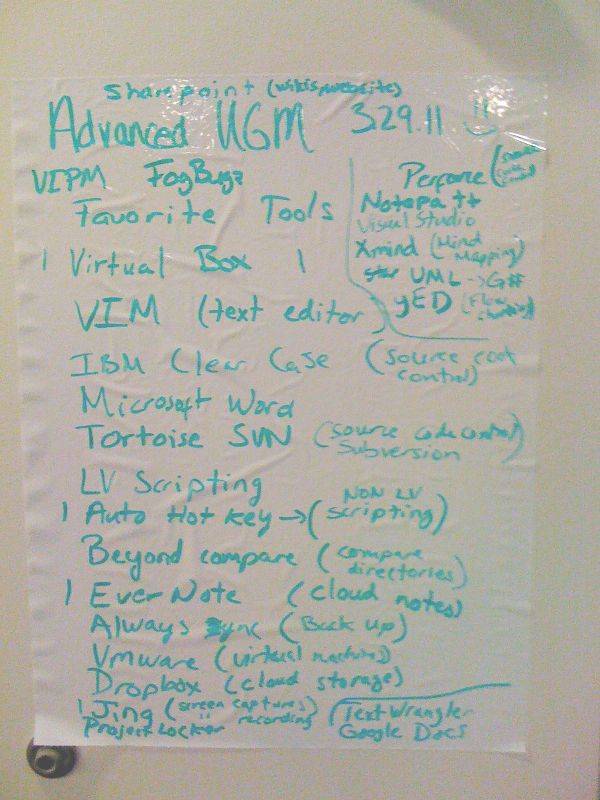 Sharepoint (wikis, website)
Advanced UGM 3.29.11
VIPM FogBugz
Favorite Tools
Perforce (Source Code Control)
Notepad ++
Visual Studio
Xmind (Mind Mapping)
star UML → G#
yED (Flow charting)
1 Virtual Box 1
VIM (text editor)
IBM Clear Case (source code control)
Microsoft Word
Tortoise SVN (source code control) Subversion
LV Scripting
1 Auto Hot Key → (NON LV scripting)
Beyond compare (compare directories)
1 EverNote (cloud notes)
Always Sync (Back up)
Vmware (virtual machines)
Dropbox (cloud storage)
1 Jing (screen captures) recording
Project Locker
Text Wrangler
Google Docs